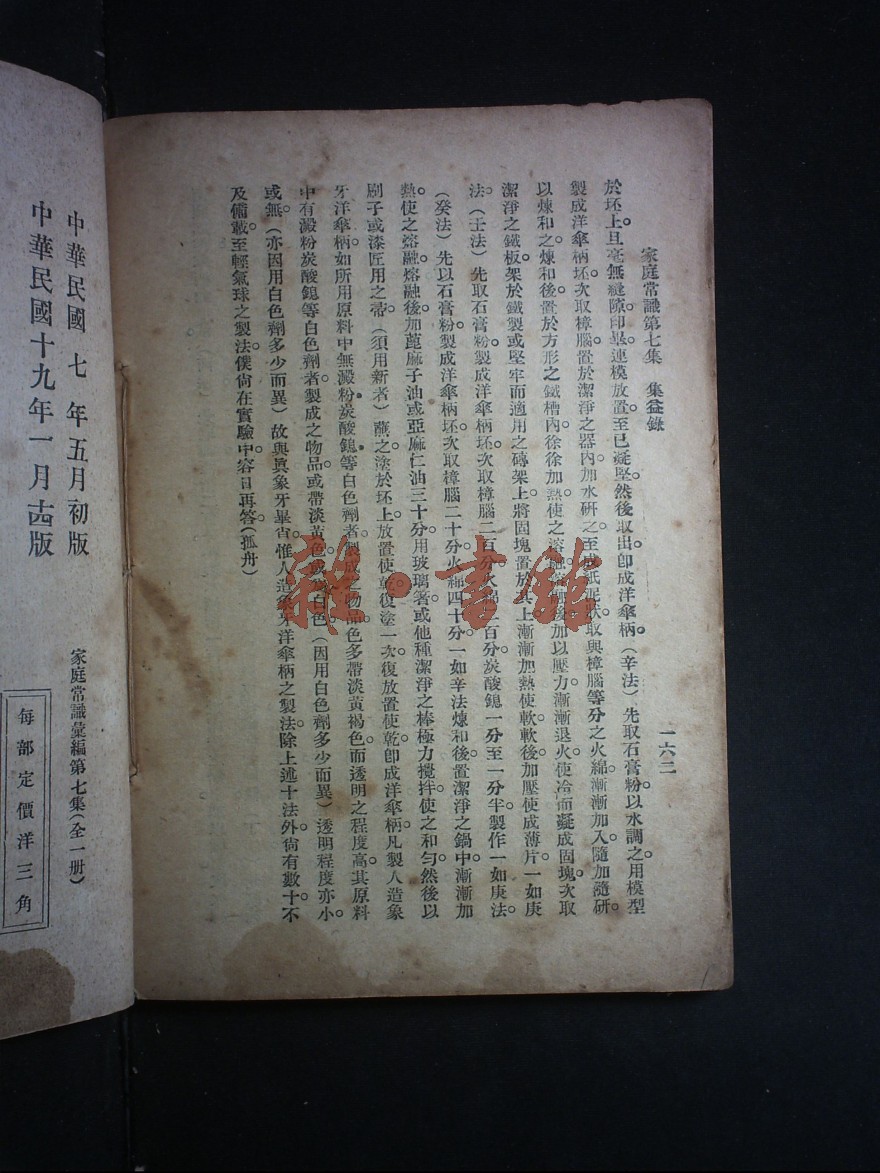 家庭常識第七集　集益錄　一六二
於坯上。且毫無縫隙。印畢。連模放置。至已凝堅。然後取出。卽成洋傘柄。（辛法）先取石膏粉。以水調之。用模型
製成洋傘柄坯。次取樟腦。置於潔淨之器內。加水研之。至成紙泥狀。取與樟腦等分之火綿。漸漸加入。隨加隨研。
以煉和之。煉和後。置於方形之鐵槽內。徐徐加熱。使之溶融。後加以壓力。漸漸退火。使冷而凝成固塊。次取
潔淨之鐵板。架於鐵製或堅牢而適用之磚架上。將固塊置於其上。漸漸加熱使軟。軟後加壓。使成薄片。一如庚
法。（壬法）先取石膏粉。製成洋傘柄坯。次取樟腦二百分。火綿二百分。炭酸鎴一分至一分半。製作一如庚法。
（癸法）先以石膏粉製成洋傘柄坯。次取樟腦二十分。火綿四十分。一如辛法煉和後。置潔淨之鍋中。漸漸加
熱。使之熔融。熔融後。加蓖麻子油或亞麻仁油三十分。用玻璃箸或他種潔淨之棒極力攪拌。使之和勻。然後以
刷子或漆匠用之帚（須用新者）蘸之塗於坯上。放置使乾。復塗一次。復放置使乾。卽成洋傘柄。凡製人造象
牙洋傘柄。如所用原料中無澱粉炭酸鎴等白色劑者。製成之物品。色多帶淡黃褐色。而透明之程度高。其原料
中有澱粉炭酸鎴等白色劑者。製成之物品。或帶淡黃色。或帶白色。（因用白色劑多少而異）透明程度亦小。
或無。（亦因用白色劑多少而異）故與眞象牙畢肖。惟人造象牙洋傘柄之製法。除上述十法外。尙有數十。不
及備載。至輕氣球之製法。僕尙在實驗中。容日再答。（孤舟）
中華民國七年五月初版
中華民國十九年一月十四版
家庭常識彙編第七集（全一册）
每部定價洋三角
雜·書館